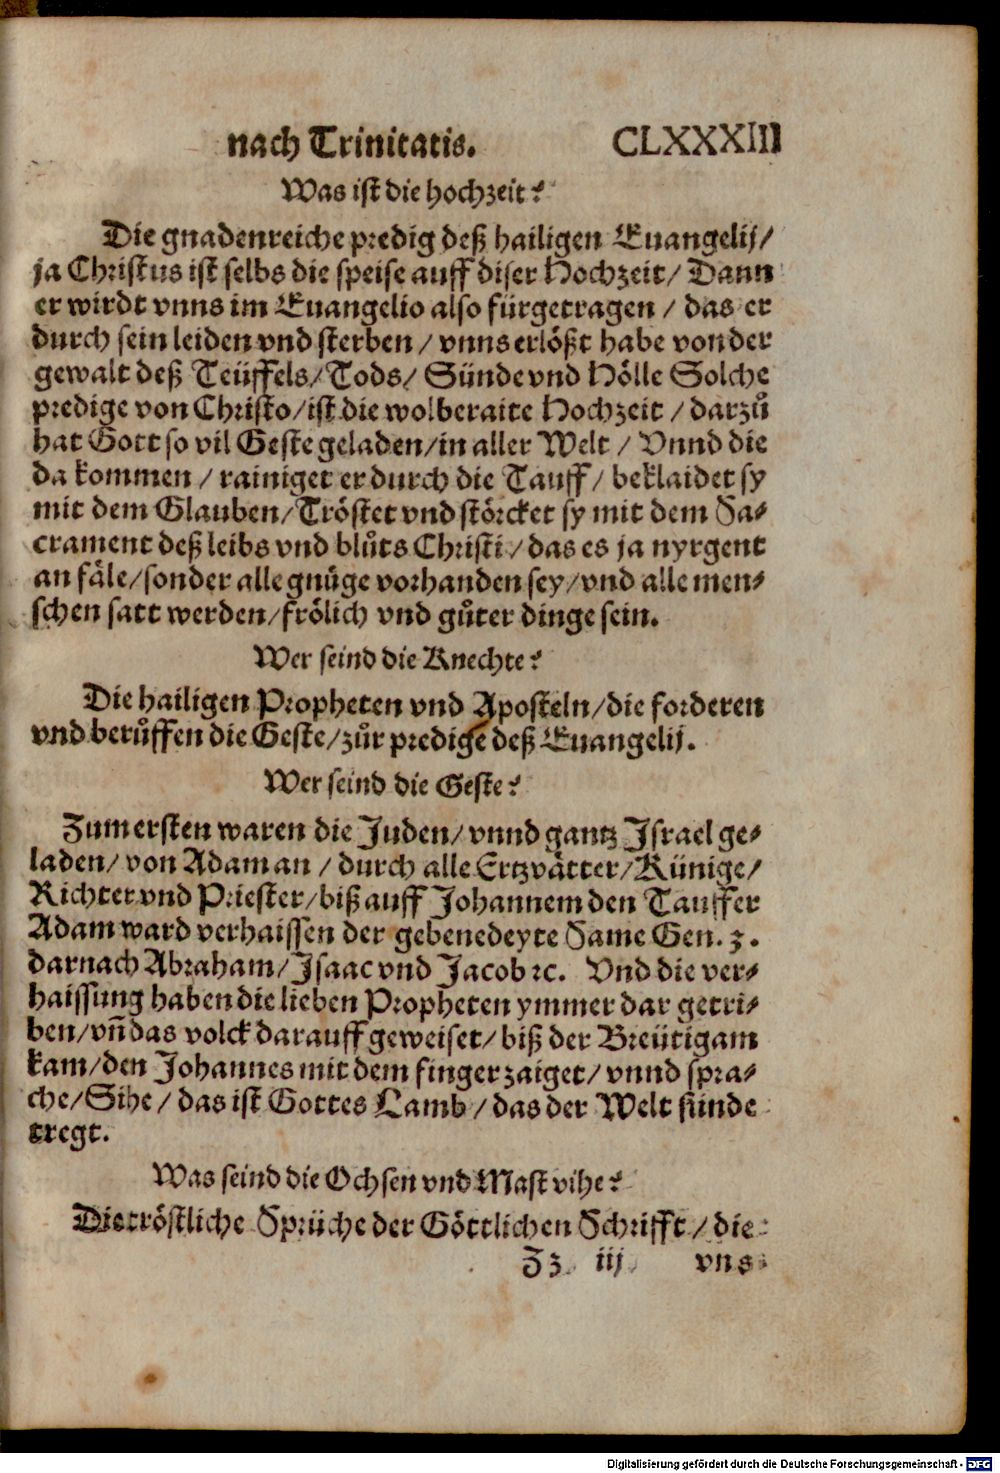 nach Trinitatis. CLXXXIII
Was ist die hochzeit?
Die gnadenreiche predig deß hailigen Euangelij/
ja Christus ist selbs die speise auff diser Hochzeit/ Dann
er wirdt vnns im Euangelio also fürgetragen / das er
durch sein leiden vnd sterben / vnns erlößt habe von der
gewalt deß Teüffels/ Tods/ Sünde vnd Hölle Solche
predige von Christo/ ist die wolberaite Hochzeit / darzů
hat Gott so vil Geste geladen/in aller Welt / Vnnd die
da kommen / rainiget er durch die Tauff / beklaidet sy
mit dem Glauben/ Tröstet vnd störcket sy mit dem Sa-
crament deß leibs vnd blůts Christi / das es ja nyrgent
an fäle/sonder alle gnüge vorhanden sey/vnd alle men-
schen satt werden/frölich vnd gůter dinge sein.
Wer seind die Knechte?
Die hailigen Propheten vnd Aposteln/die forderen
vnd berůffen die Geste/zůr predige deß Euangelij.
Wer seind die Geste?
Zum ersten waren die Juden/ vnnd gantz Israel ge-
laden/ von Adam an / durch alle Ertzvätter/Künige/
Richter vnd Priester/biß auff Johannem den Tauffer
Adam ward verhaissen der gebenedeyte Same Gen. 3.
darnach Abraham/Isaac vnd Jacob ꝛc. Vnd die ver-
haissung haben die lieben Propheten ymmer dar getri-
ben/vn̄ das volck darauff geweiset/ biß der Breütigam
kam/den Johannes mit dem finger zaiget/ vnnd spra-
che/Sihe / das ist Gottes Lamb / das der Welt sünde
tregt.
Was seind die Ochsen vnd Mastvihe?
Die tröstliche Sprüche der Göttlichen Schrifft / die
Zz iij vns
Digitalisierung gefördert durch die Deutsche Forschungsgemeinschaft - DFG